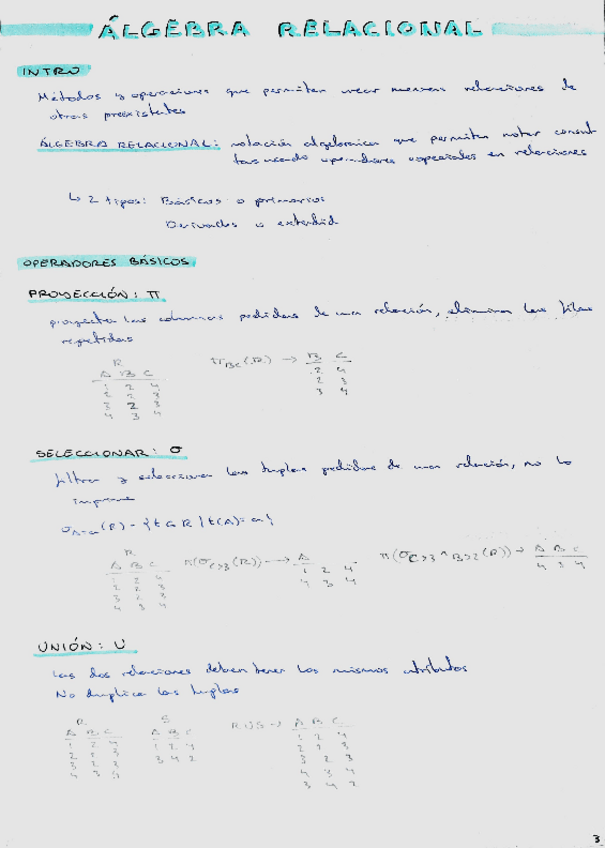 ÁLGEBRA RELACIONAL
INTRO
Métodos y operaciones que permiten crear nuevas relaciones de
otras preexistentes
ÁLGEBRA RELACIONAL: notación algebraica que permiten notar consul
tas usando operadores especiales en relaciones
↳ 2 tipos: Básicos o primarios
Derivados o extendid
OPERADORES BÁSICOS
PROYECCIÓN: π
proyecta las columnas pedidas de una relación, elimina las filas
repetidas
R
A B C
1 2 4
2 2 3
3 2 3
4 3 4
π BC (R) → B C
2 4
2 3
3 4
SELECCIONAR: σ
filtrar y seleccionar las tuplas pedidas de una relación, no lo
imprime
σA=a(R) = {t ∈ R | t(A)=a}
R
A B C
π(σC>3(R)) → A
1 2 4
4 3 4
π(σC>3 ^ B>2(R)) → A B C
4 3 4
UNIÓN: U
Las dos relaciones deben tener los mismos atributos
No duplica las tuplas
R
A B C
S
A B C
1 2 4
3 4 2
RUS → A B C
1 2 4
2 2 3
3 2 3
4 3 4
3 4 2
3